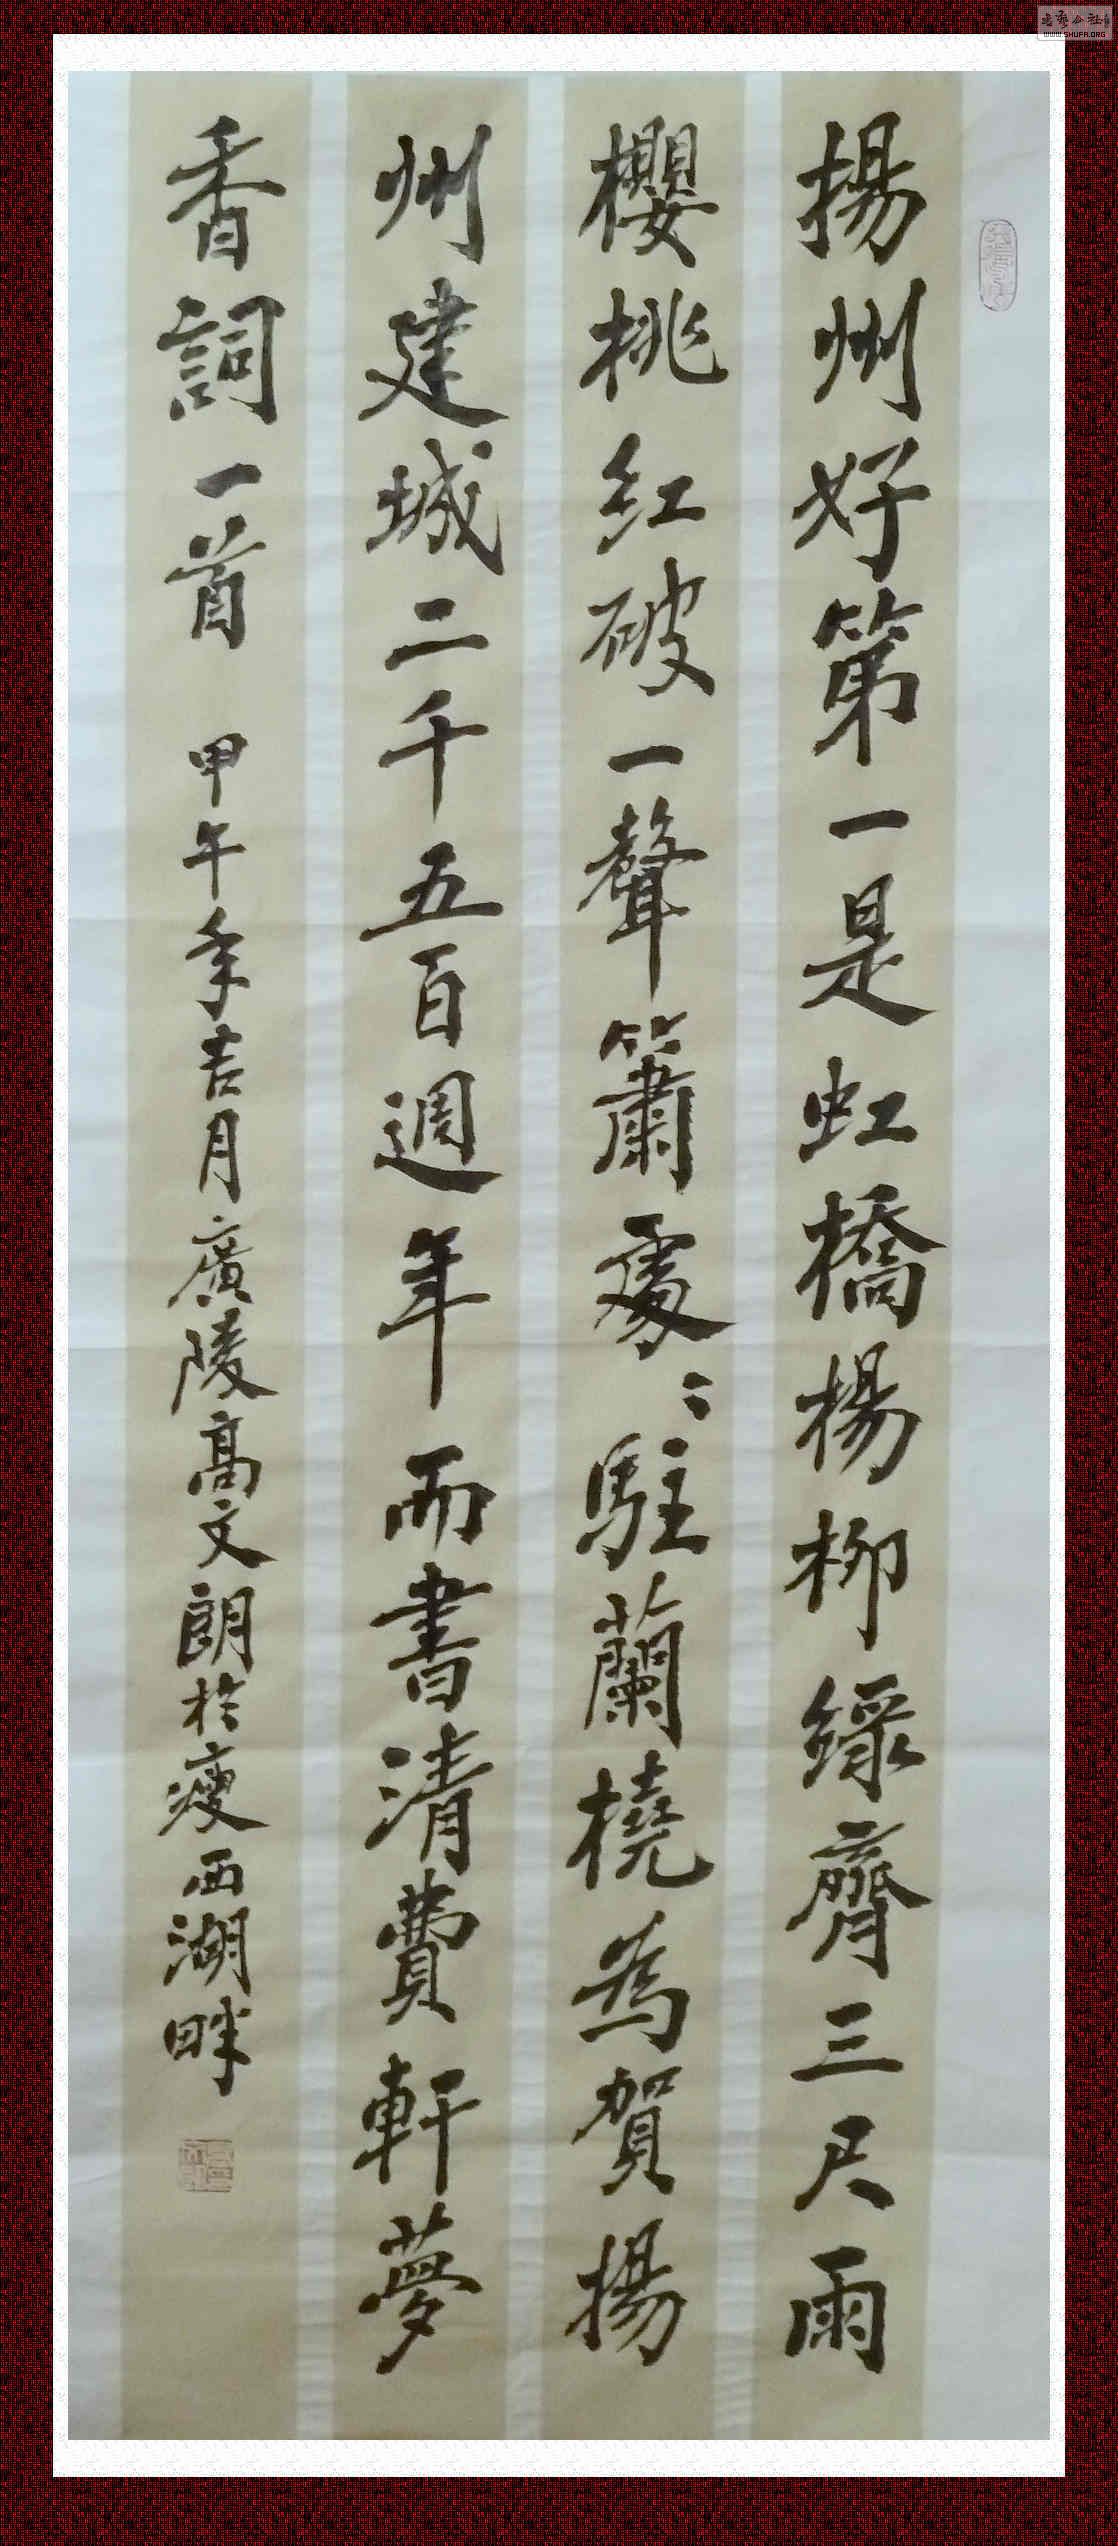 揚州好第一是虹橋楊柳緑齊三尺雨
櫻桃紅破一聲簫處〻駐蘭橈為賀揚
州建城二千五百週年而書清費軒夢
香詞一首
甲午年吉月廣陵高文朗於瘦西湖畔
WWW.SHUFA.ORG